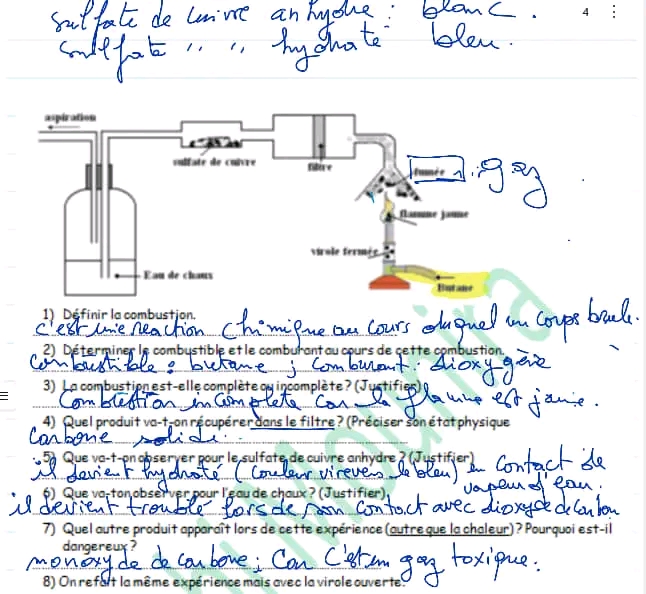 sulfate de cuivre anhydre : blanc.
sulfate " " hydraté bleu.
4
aspiration
sulfate de cuivre
filtre
fumée 1. gaz
flamme jaune
virole fermée
Eau de chaux
Butane
1) Définir la combustion.
c'est une reaction chimique au cours duquel un corps brule.
2) Déterminer le combustible et le comburant au cours de cette combustion.
combustible : butane ; comburant : dioxygène
3) La combustion est-elle complète ou incomplète ? (Justifier)
Combustion incomplete car la flamme est jaune.
4) Quel produit va-t-on récupérer dans le filtre ? (Préciser son état physique
Carbone solide.
5) Que va-t-on observer pour le sulfate de cuivre anhydre ? (Justifier)
il devient hydraté (couleur vire vers le bleu) en contact de
vapeur d'eau.
6) Que va-ton observer pour l'eau de chaux ? (Justifier)
il devient trouble lors de son contact avec dioxyde de carbon
7) Quel autre produit apparaît lors de cette expérience (autre que la chaleur) ? Pourquoi est-il
dangereux ?
monoxyde de carbone ; Car C'est un gaz toxique.
8) On refait la même expérience mais avec la virole ouverte.